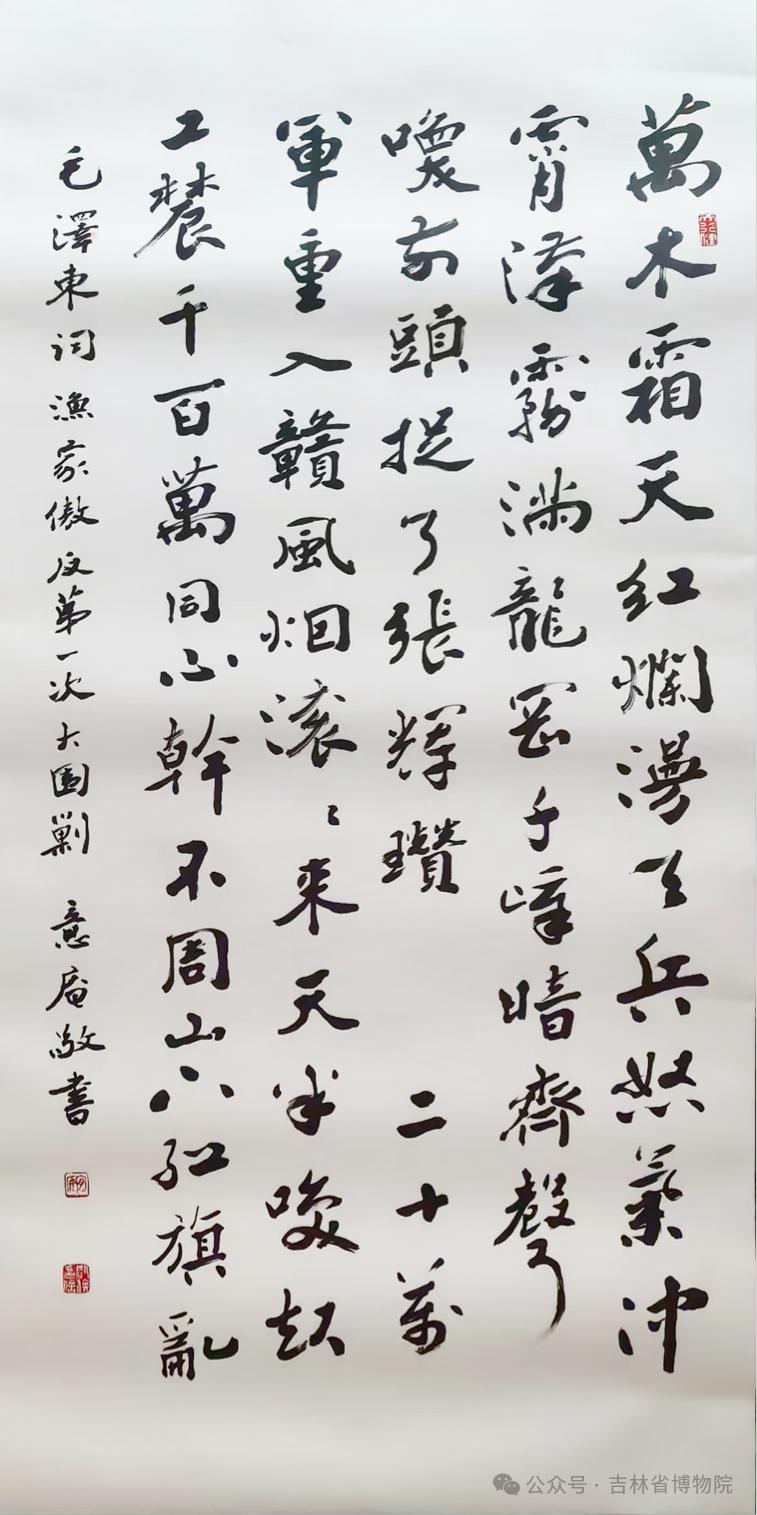 萬木霜天紅爛漫天兵怒氣沖
霄漢霧滿龍岡千嶂暗齊聲
喚前頭捉了張輝瓚 二十萬
軍重入贛風烟滾〻来天半喚起
工農千百萬同心幹不周山下紅旗亂
毛澤東词 漁家傲反第一次大圍剿 意庵敬書
公众号·吉林省博物院